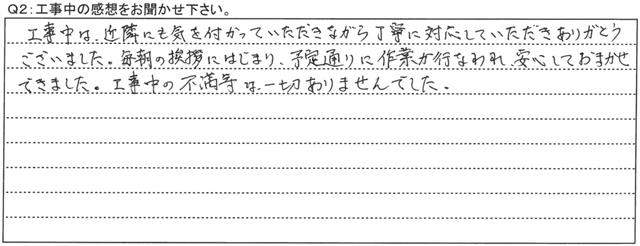 Q2：工事中の感想をお聞かせ下さい。
工事中は、近隣にも気を付かっていただきながら丁寧に対応していただきありがとう
ございました。毎朝の挨拶にはじまり、予定通りに作業が行なわれ、安心しておまかせ
できました。工事中の不満等は一切ありませんでした。